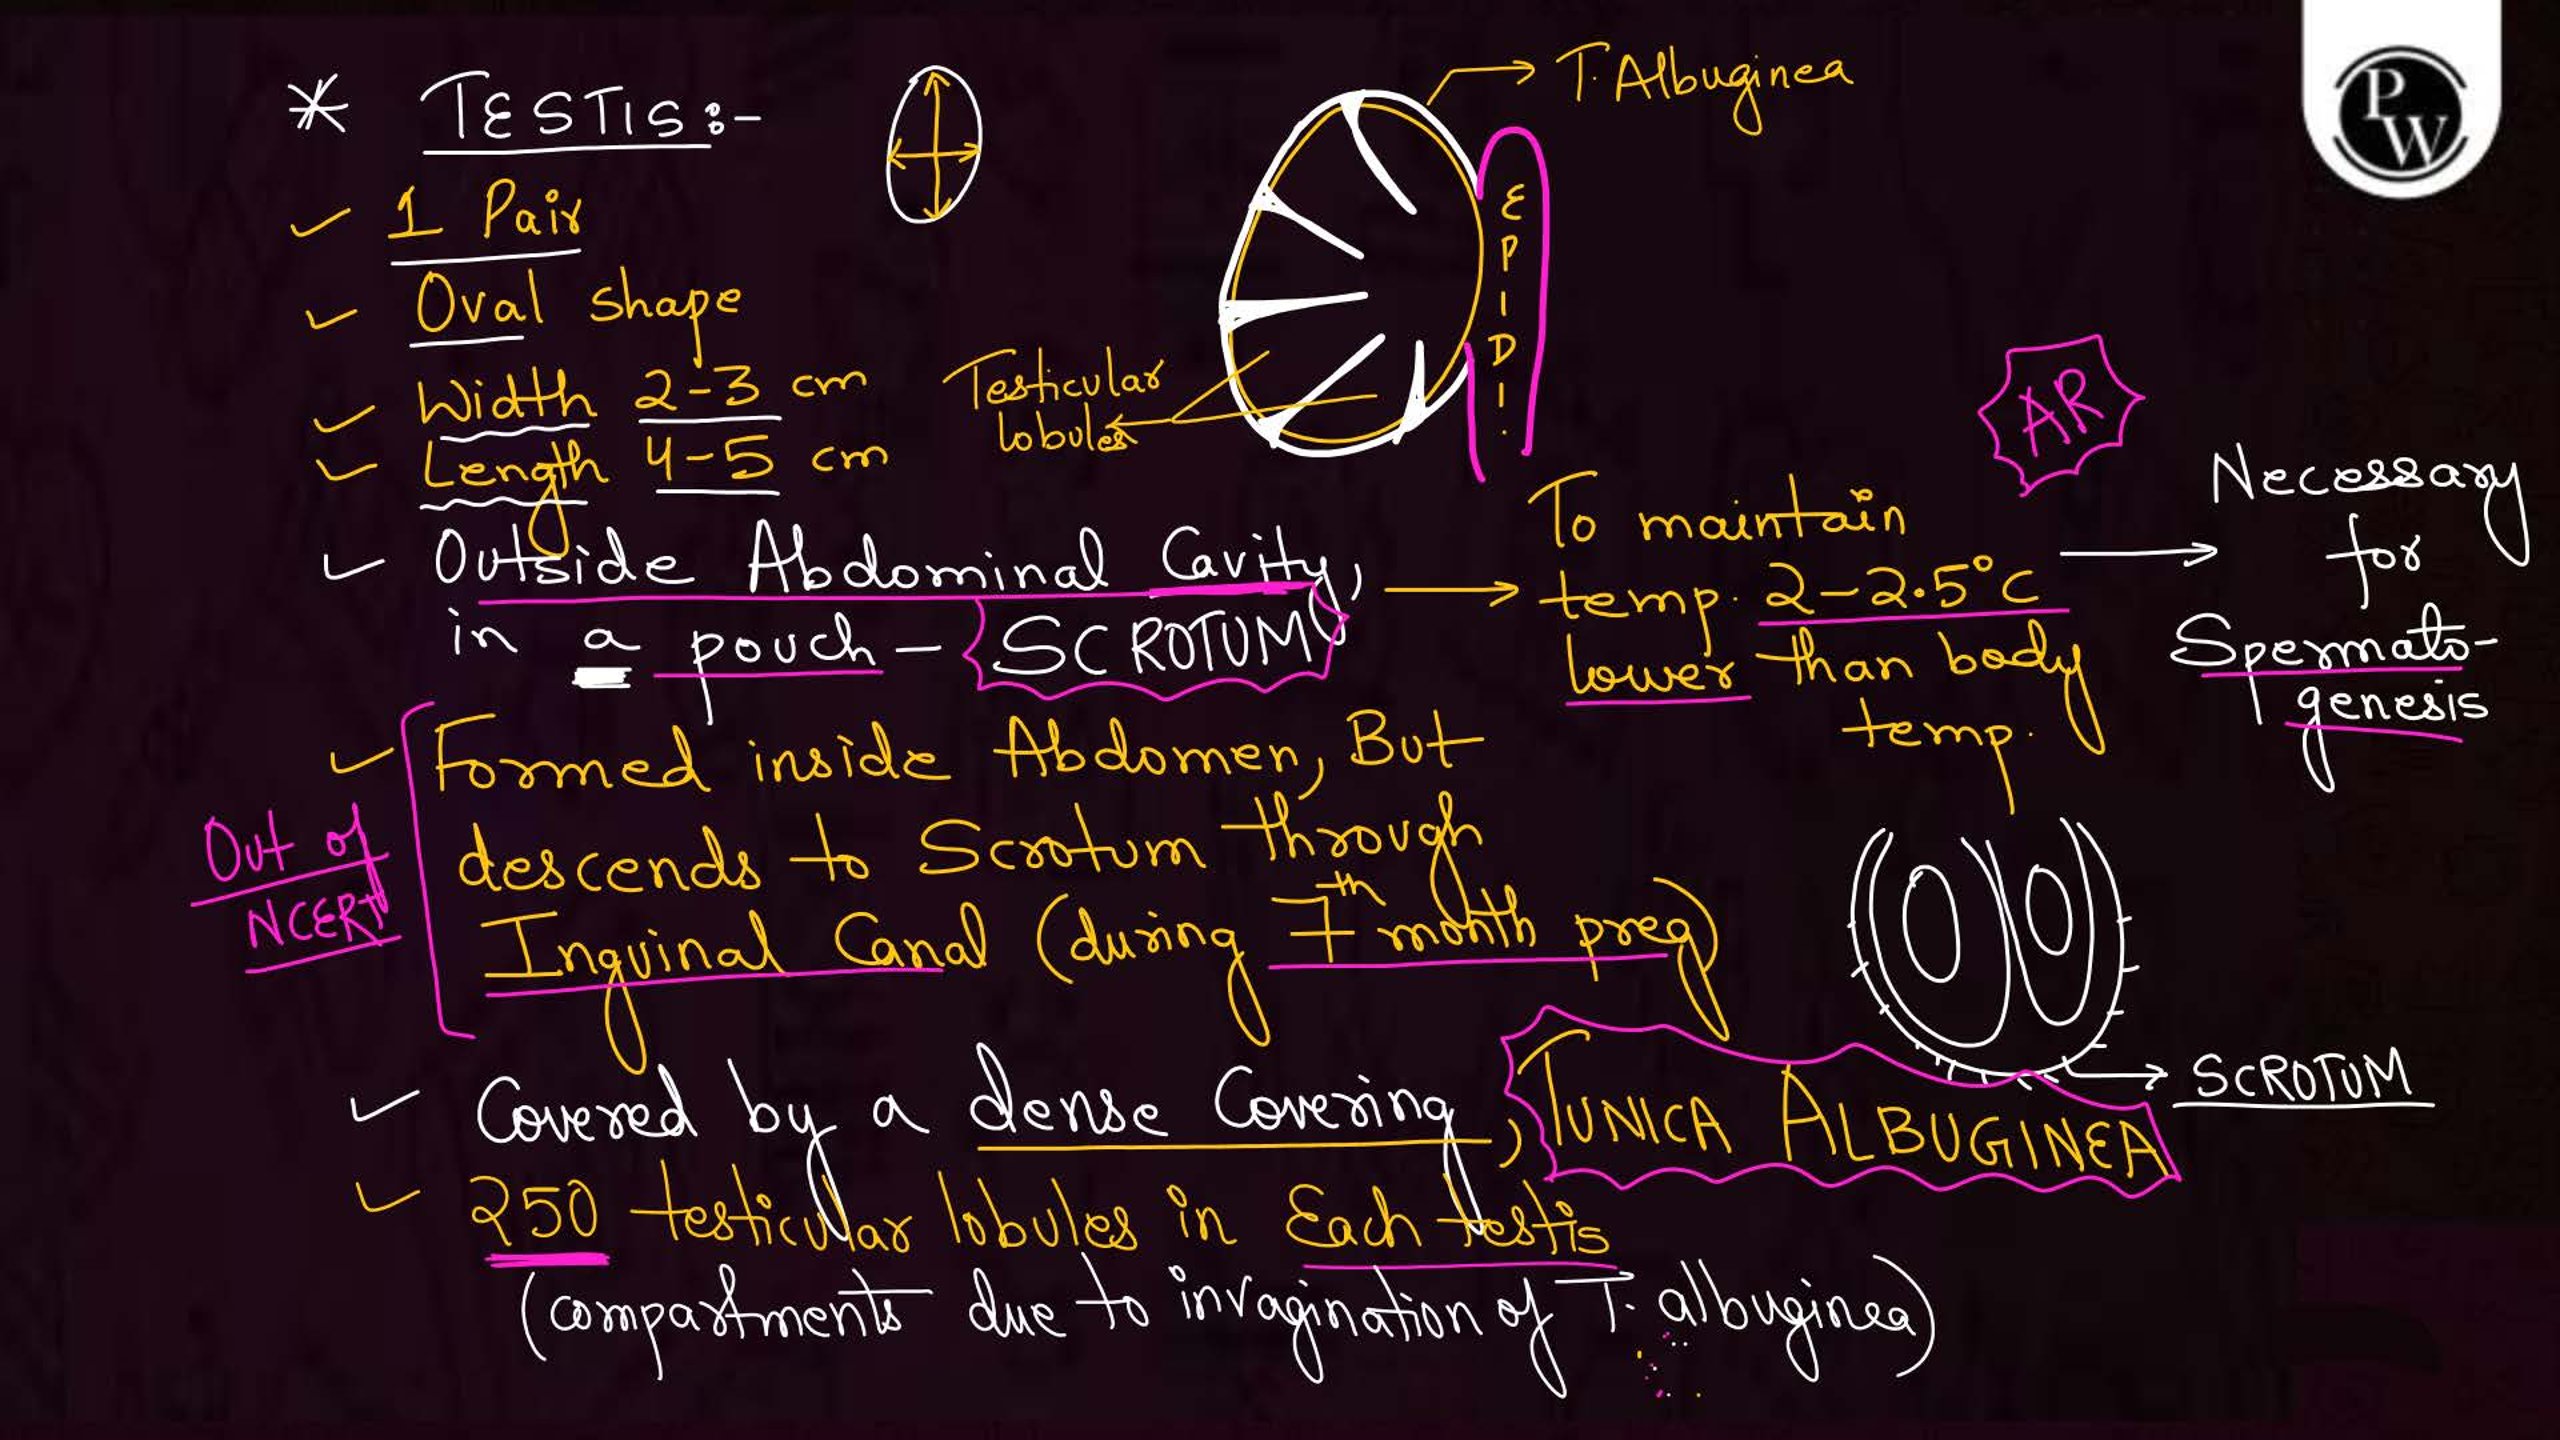 * TESTIS:-
✓ 1 Pair
✓ Oval shape
✓ Width 2-3 cm
✓ Length 4-5 cm
T. Albuginea
EPIDI.
Testicular
lobules
✓ Outside Abdominal Cavity,
in a pouch – SCROTUM
To maintain
temp. 2-2.5°C
lower than body
temp.
AR
Necessary
for
Spermato-
genesis
✓ Formed inside Abdomen, But
descends to Scrotum through
Inguinal Canal (during 7th month preg)
Out of
NCERT
SCROTUM
✓ Covered by a dense Covering, TUNICA ALBUGINEA
✓ 250 testicular lobules in Each testis
(compartments due to invagination of T. albuginea)
PW